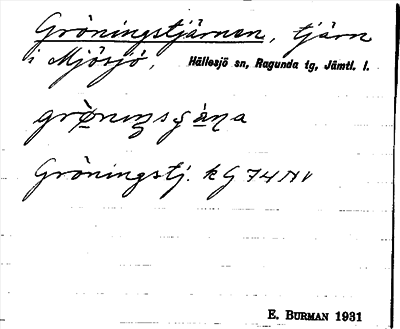 Gröningstjärnen, tjärn
i Mjösjö, Hällesjö sn, Ragunda tg, Jämtl. l.
Gröningstj. k G 74 NV
E. BURMAN 1931